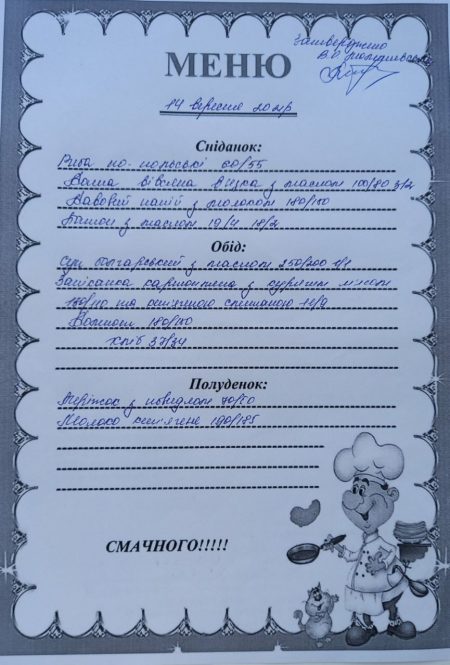 Затверджено
МЕНЮ
14 вересня 2021р
Сніданок:
Риба по-польські 60/55
Каша вівсяна в'язка з маслом 100/80 3/2
Кавовий напій з молоком 180/150
Батон з маслом 19/4 18/2
Обід:
Суп болгарський з маслом 250/200 1/1
Запіканка картопляна з курячим м'ясом
160/110 та кип'яченою сметаною 11/9
Компот 180/150
хліб 37/34
Полуденок:
Пиріжок з повидлом 70/50
Молоко кип'ячене 190/185
СМАЧНОГО!!!!!